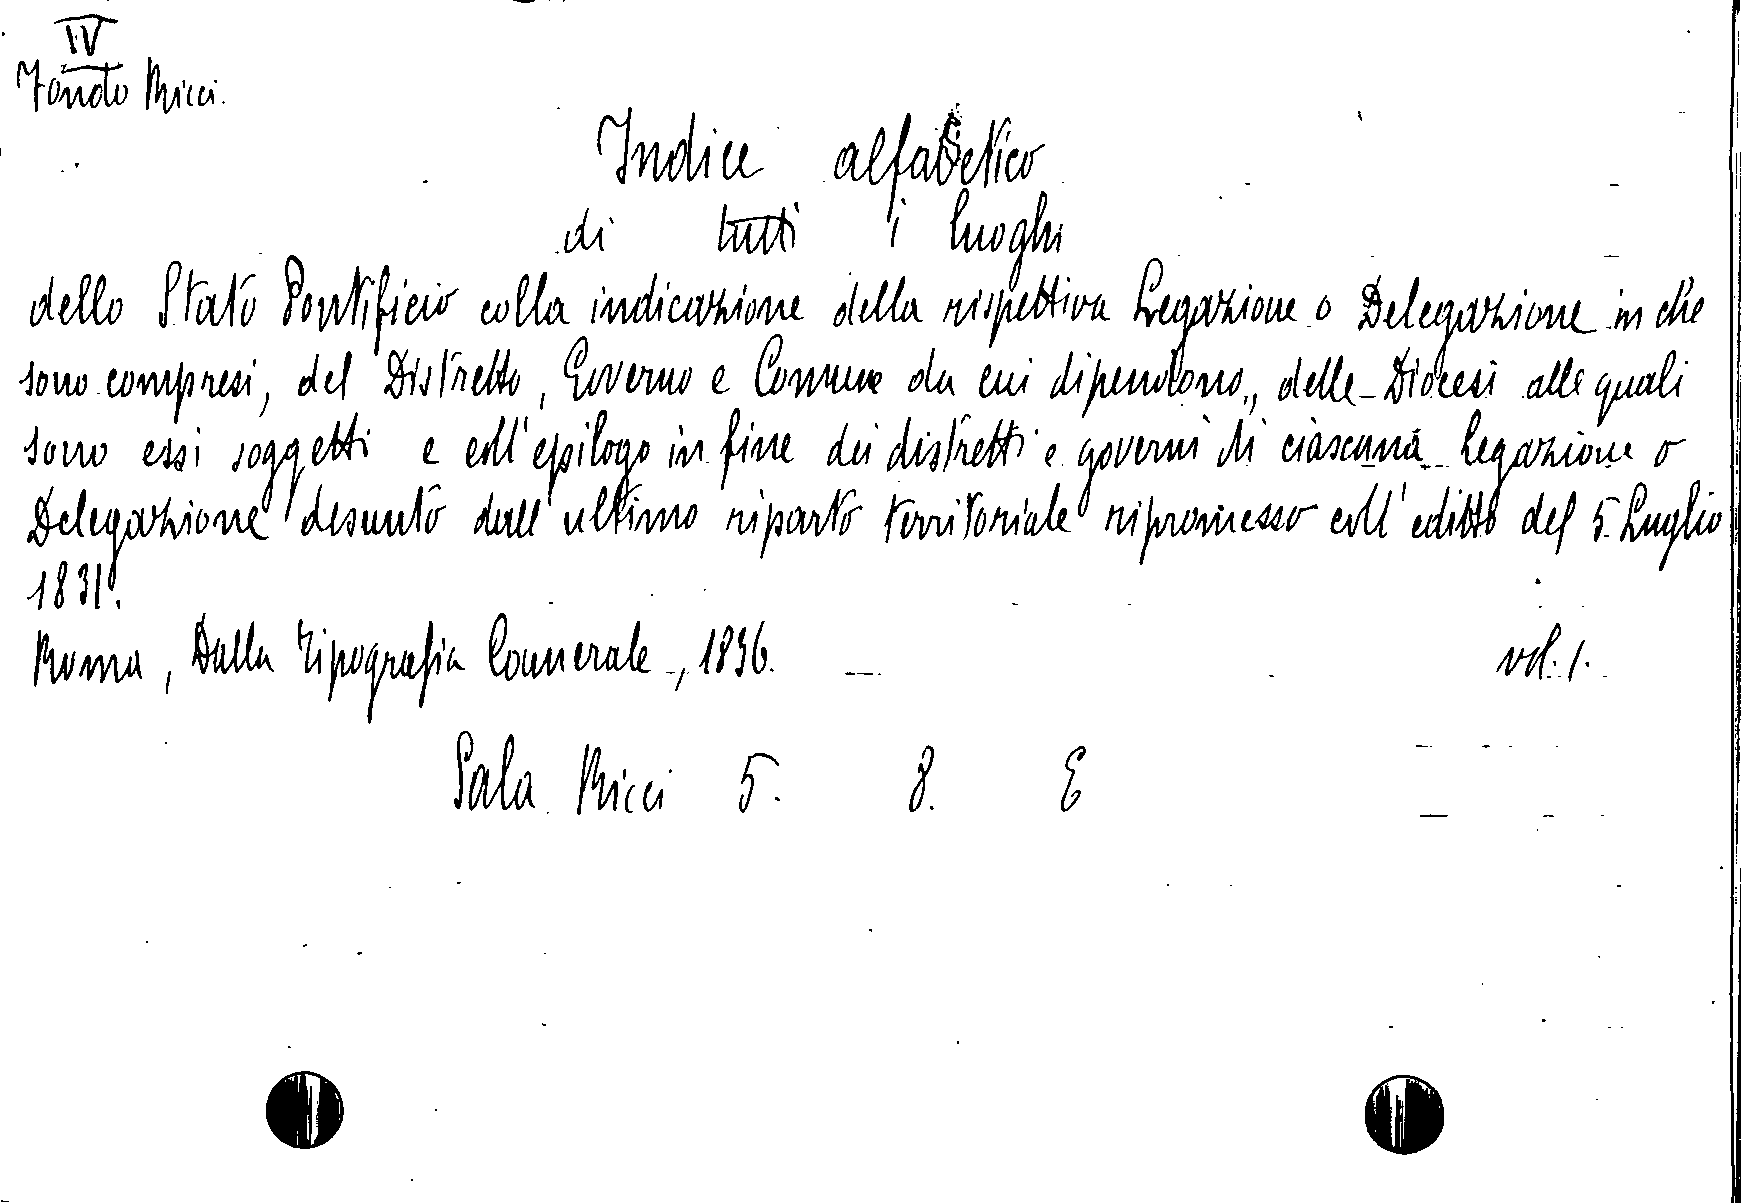 IV
Fondo Ricci.
Indice alfabetico
di tutti i luoghi
dello Stato Pontificio colla indicazione della rispettiva Legazione o Delegazione in che
sono compresi, del Distretto, Governo e Comune da cui dipendono, delle Diocesi alle quali
sono essi soggetti e coll'epilogo in fine dei distretti e governi di ciascuna legazione o
Delegazione desunto dall'ultimo riparto territoriale ripromesso coll'editto del 5 Luglio
1831.
Roma, Dalla Tipografia Camerale, 1836. vol. 1.
Sala Ricci 5. 8. E